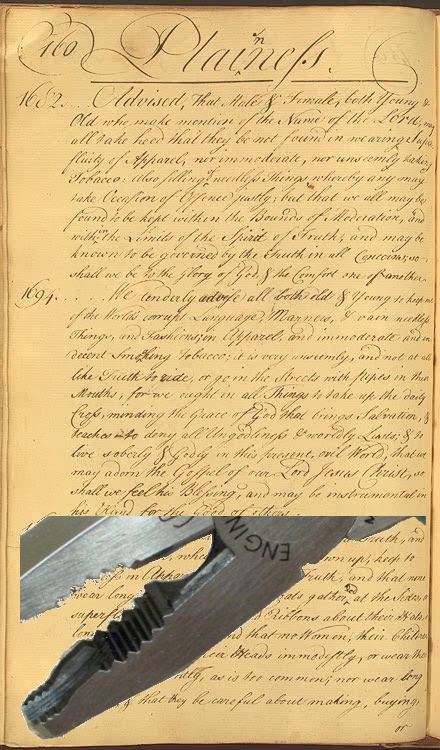 160 Plainness.
1682. . . Advised, That Male & Female, both Young &
Old who make mention of the Name of the Lord, may
all take heed that they be not found in wearing Supe
fluity of Apparel, nor immoderate, nor unseemly taking
Tobacco: Also selling needless Things whereby any may
take Occasion of Offence justly; but that we all may be
found to be kept within the Bounds of Moderation, and
within the Limits of the Spirit of Truth; and may be
known to be governed by the Truth in all Concerns, so
shall we be to the Glory of God, & the Comfort one of another.
1694. . . . . . We tenderly advise all both old & Young to keep
of the World's corrupt Language, Manners, & vain needless
Things, and Fashions, in Apparel, and immoderate and in
decent Smoking Tobacco; it is very unseemly, and not at all
like Truth to ride, or go in the Streets with pipes in their
Mouths, for we ought in all Things to take up the daily
Cross, minding the Grace of God that brings Salvation, &
teaches to deny all Ungodliness & worldly Lusts, & to
live soberly & Godly in this present, evil World, that we
may adorn the Gospel of our Lord Jesus Christ, so
shall we feel his Blessing, and may be instrumental in
his Hand for the Good of others.
ENGIN
up, keep to
in Truth, and that none
wear long gather at the Sides,
Ribbons about their Heads
and that no Women, their Children
Heads immodestly, or wear the
as is too common; nor wear long
& that they be careful about making, buying,
or